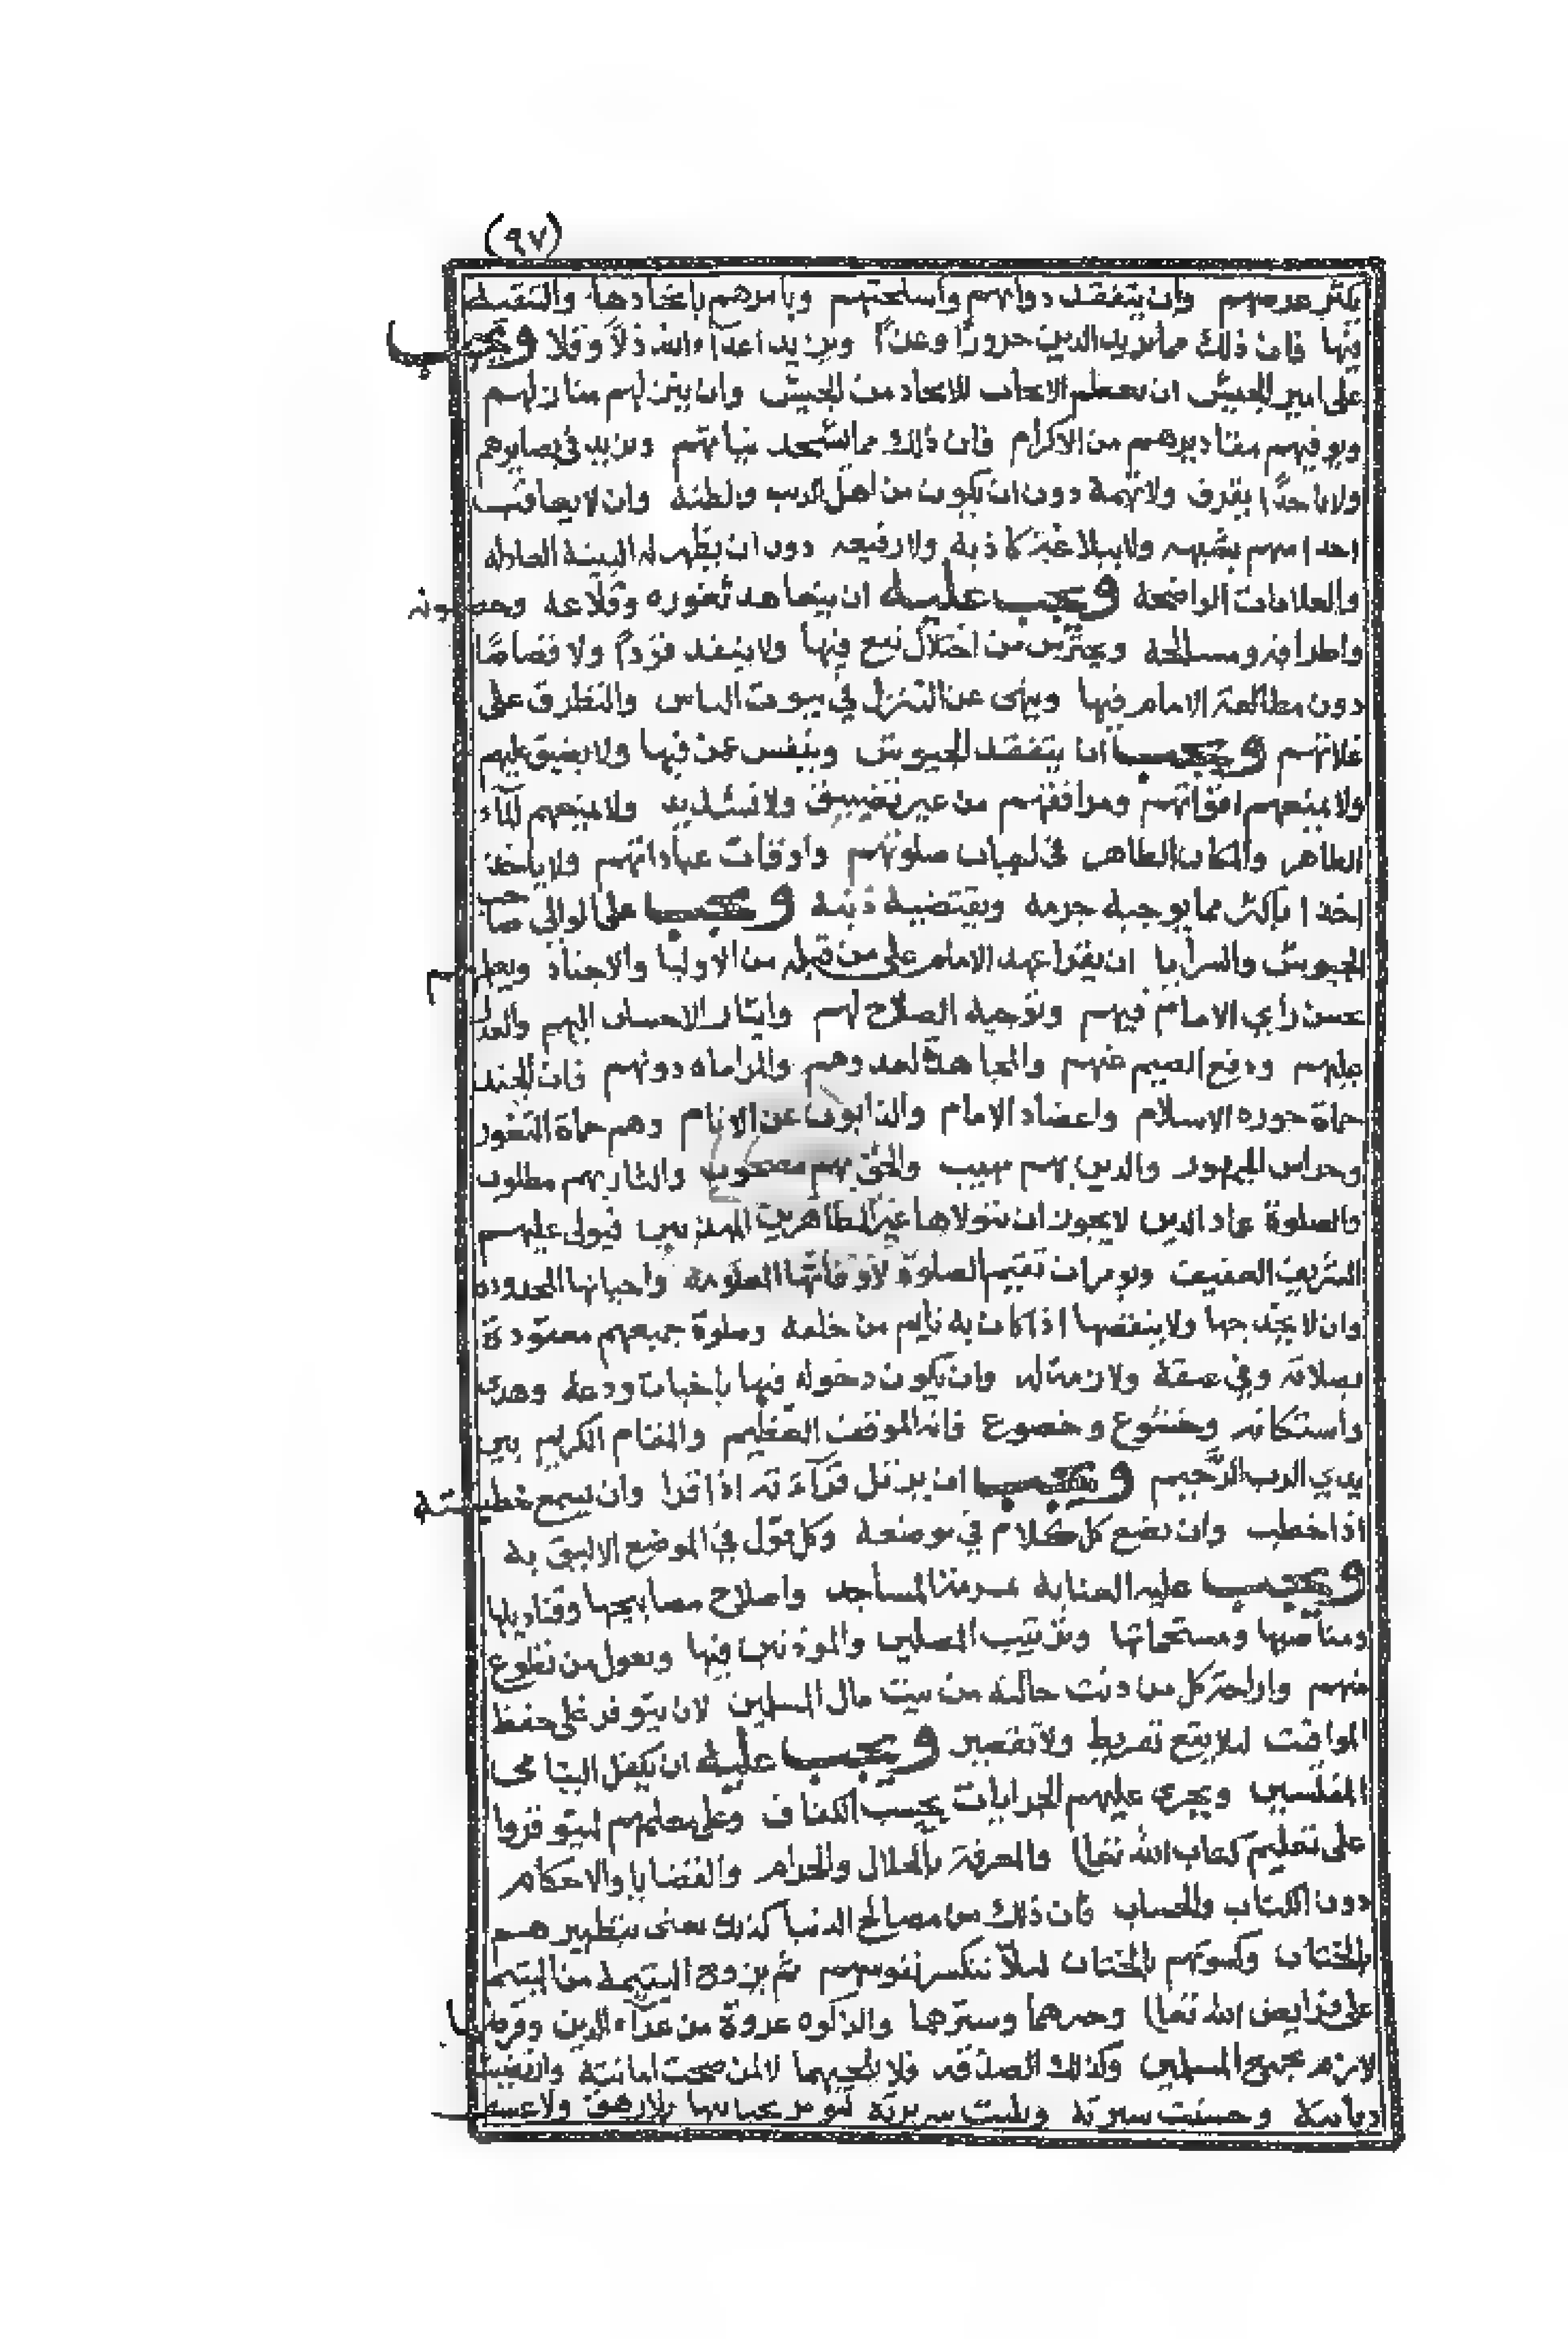 (٩٧)
يكثر عرضهم وان يتفقد دوابهم واسلحتهم ويامرهم باتخاذها والتقسط
فيها فان ذلك مما يزيد الدين حرورا وعزا ويزيد اعدا الله ذلا وقلا ويجب
على امير الجيش ان يعطم الانجاب للانجاد من الجيش وان ينزلهم منازلهم
ويوفيهم مقاديرهم من الاكرام فان ذلك مما نياتهم ويزيد في بصايرهم
ولا ياخذ بقرف ولا تهمة دون ان يكون من اهل الريب والظنة وان لا يعاقب
احدا منهم بشبهه ولا ببلاغة كاذبة ولا رفيعه دون ان يظهر له البينة العادله
والعلامات الواضحة ويجب عليه ان يتعاهد ثغوره وقلاعه وحصونه
واطرافه ومسالحه ويحترس من اختلال فيها ولا ينفذ ولا قصاصا
دون مطالعة الامام فيها وينهى عن التنزل في بيوت الناس والتطرق على
غلاتهم ويجب ان يتفقد الجيوش وينفس عن فيها ولا يضيق عليهم
ولا يمنعهم اقواتهم ومرافقهم من غير تضييق ولا تشديد ولا يمنعهم الماء
الطاهر والمكان الطاهر في صلوتهم واوقات عباداتهم ولا ياخذ
احدا باكثر مما يوجبه جرمه ويقتضيه ذنبه ويجب على الوالي صاحب
الجيوش والسرايا ان يقرا عهد الامام على من قبله من الاوليا والاجناد ويعلمهم
حسن راي الامام فيهم وتوخيه الصلاح لهم وايثار الاحسان اليهم والعدل
عليهم ودفع الضيم عنهم والمجاهدة لعدوهم والمراماه دونهم فان الجند
حماة حوزه الاسلام واعضاد الامام والذابون عن الانام وهم حماة الثغور
وحراس الجمهور والدين بهم مهيب والحق بهم والثار بهم مطلوب
والصلوة عماد الدين لا يجوز ان يتولاها غير الطاهرين المهذبين فيولى عليهم
الشريف العفيف ويومران تقيم الصلوة لاوقاتها المعلومة واحيانها المحدوده
وان لا يخدجها ولا ينقصها اذا كان به نايم من خلفه وصلوة جميعهم معقودة
بصلاته وفي عنقه ولازمة له وان يكون دخوله فيها باخبات ودعة وهدى
واستكانه وخشوع وخضوع فانه الموقف العظيم والمقام الكريم بين
يدي الرب الرحيم ويجب ان يرتل قرآءته اذا قرا وان يسمع خطبته
اذا خطب وان يضع كل كلام في موضعه وكل قول في الموضع الاليق به
ويجب عليه العناية بمرمة المساجد واصلاح مصابيحها وقناديلها
ومستحماتها وترتيب المصلين والموذنين فيها من تطوع
منهم وازاحة كل من دنت حالته من بيت مال المسلمين لان يتوفر على حفظ
المواقت لئلا يقع تفريط ولا تقصير ويجب عليه ان يكفل اليتامى
المفلسين ويجري عليهم الجرايات بحسب الكفاف وعلى معلمهم ليتوفروا
على تعليم كتاب الله تعا) والمعرفة بالحلال والحرام والقضايا والاحكام
دون الكتاب والحساب فان ذلك من مصالح الدنيا كذلك يعنى بتطهيرهم
بالختان وكسوتهم بالختان لئلا تنكسر نفوسهم ثم يزوج اليتيمة من اليتيم
على فرايض الله تعا) وسترها والزكوه عروة من عرآء الدين وفرض
لازم بجميع المسلمين وكذلك الصدقه فلا يجبيها الا من صحت امانته
ديانته وحسنت سيرته وطابت سريرته ليومر بجبايتها بلا رهق ولا عسف